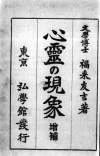 文學博士 福来友吉著
心靈の現象 増補
東京 弘學館發行